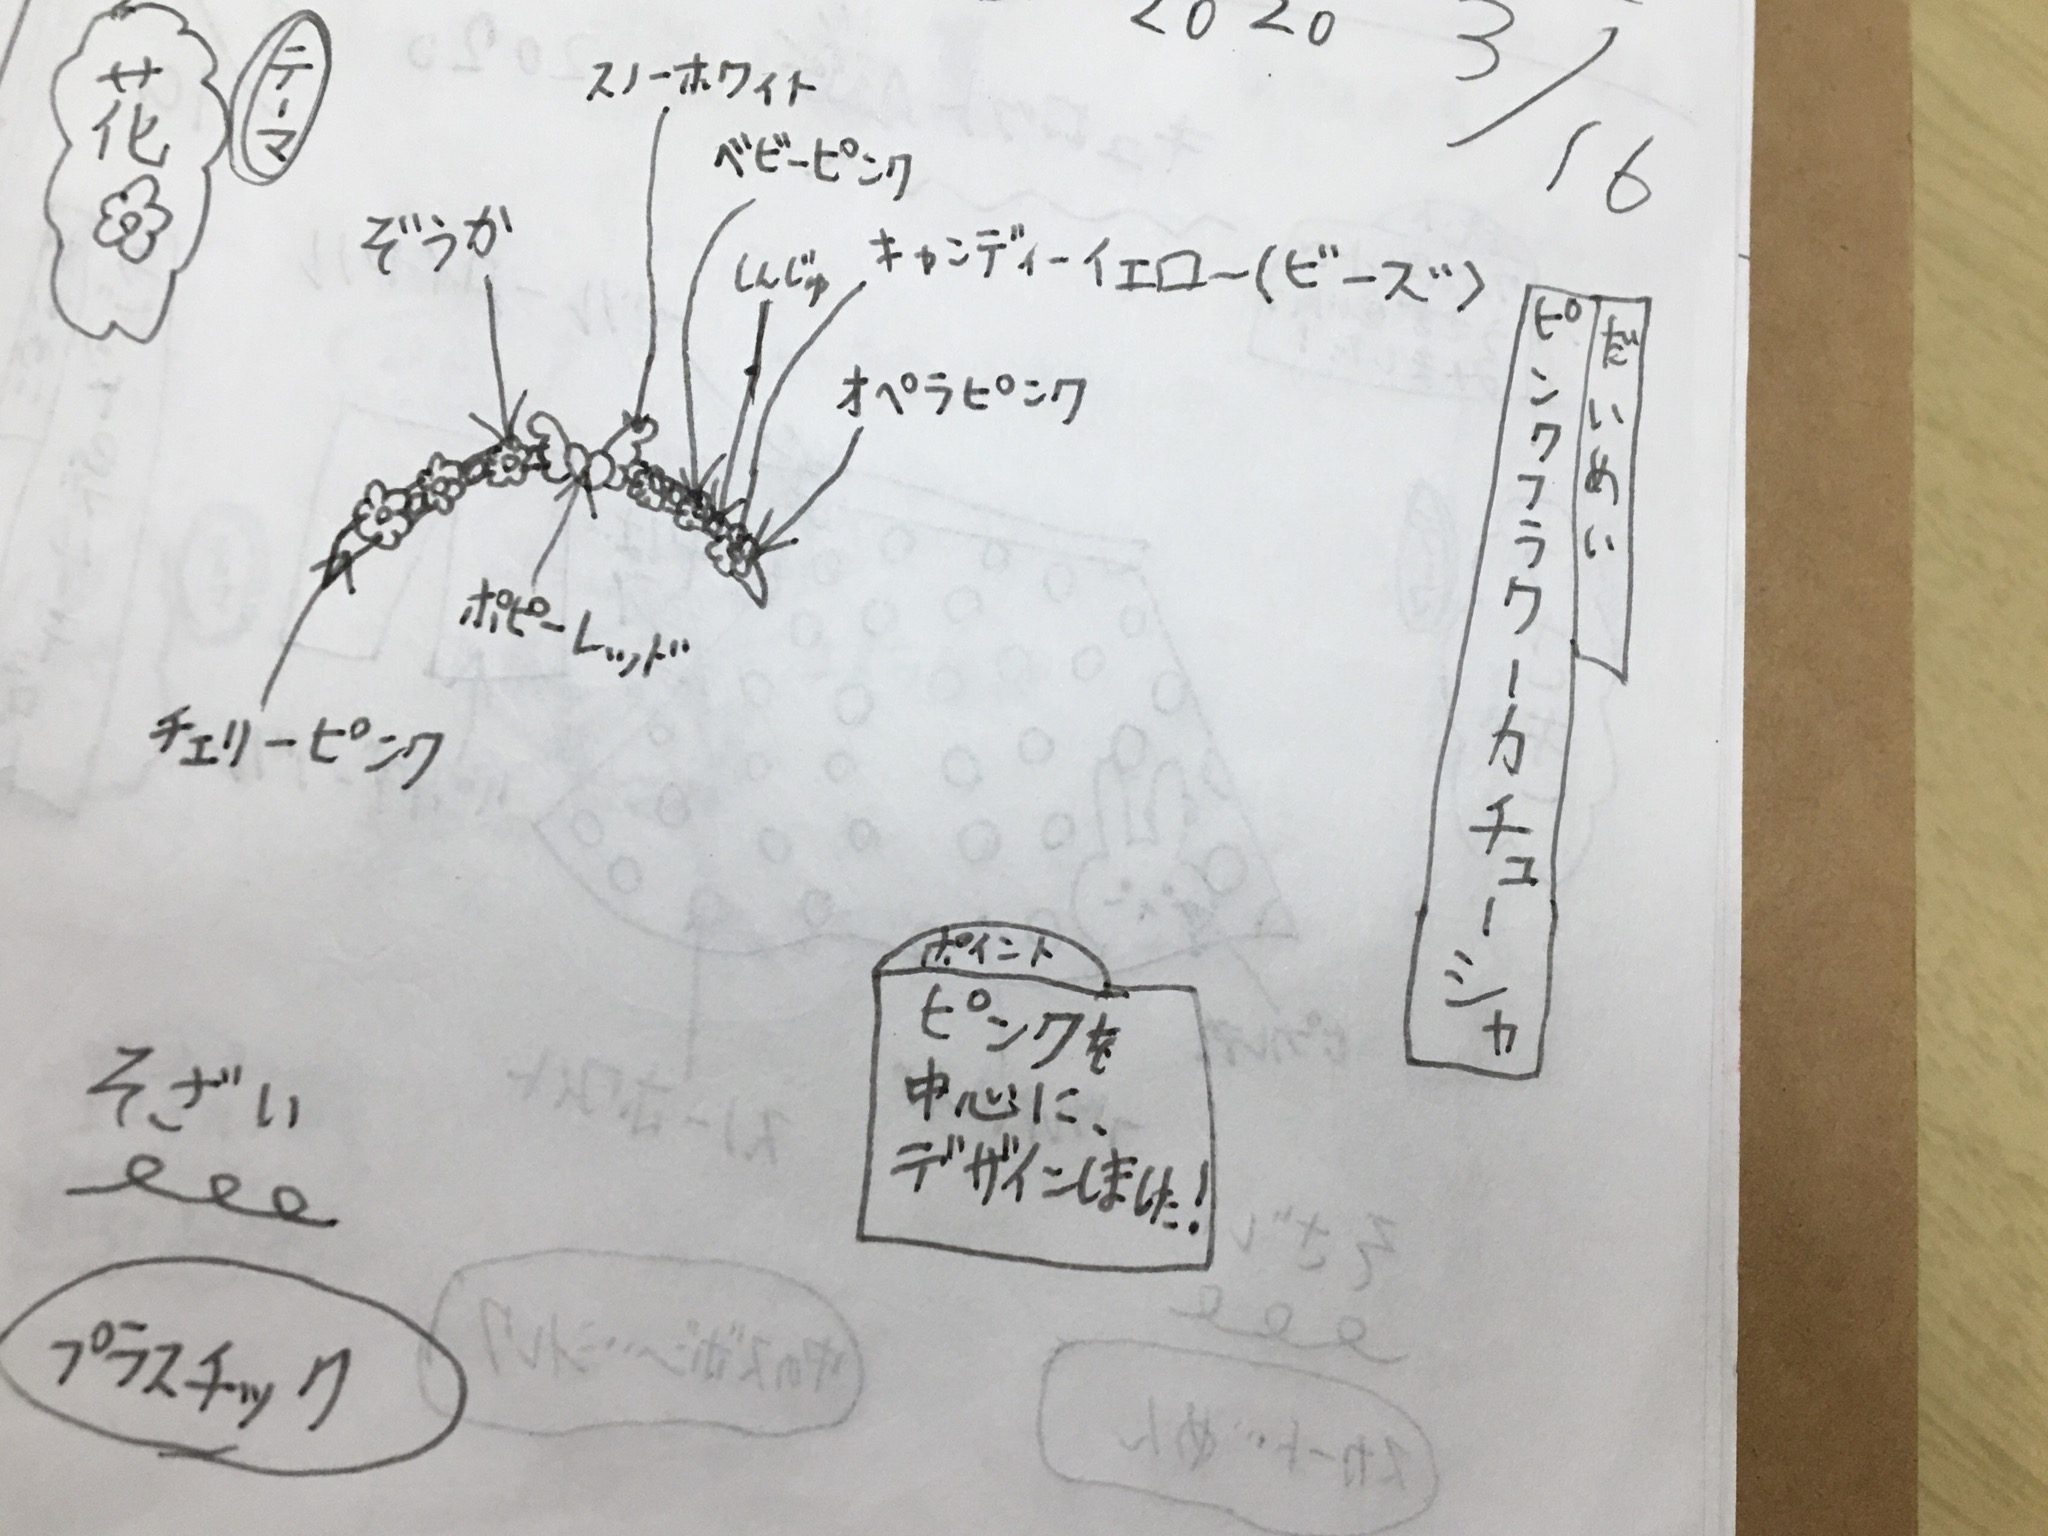 2020 3/16
だいめい
ピンクフラワーカチューシャ
テーマ
花
スノーホワイト
ベビーピンク
ぞうか
しんじゅ
キャンディーイエロー(ビーズ)
オペラピンク
ポピーレッド
チェリーピンク
ポイント
ピンクを
中心に、
デザインしました!
そざい
プラスチック